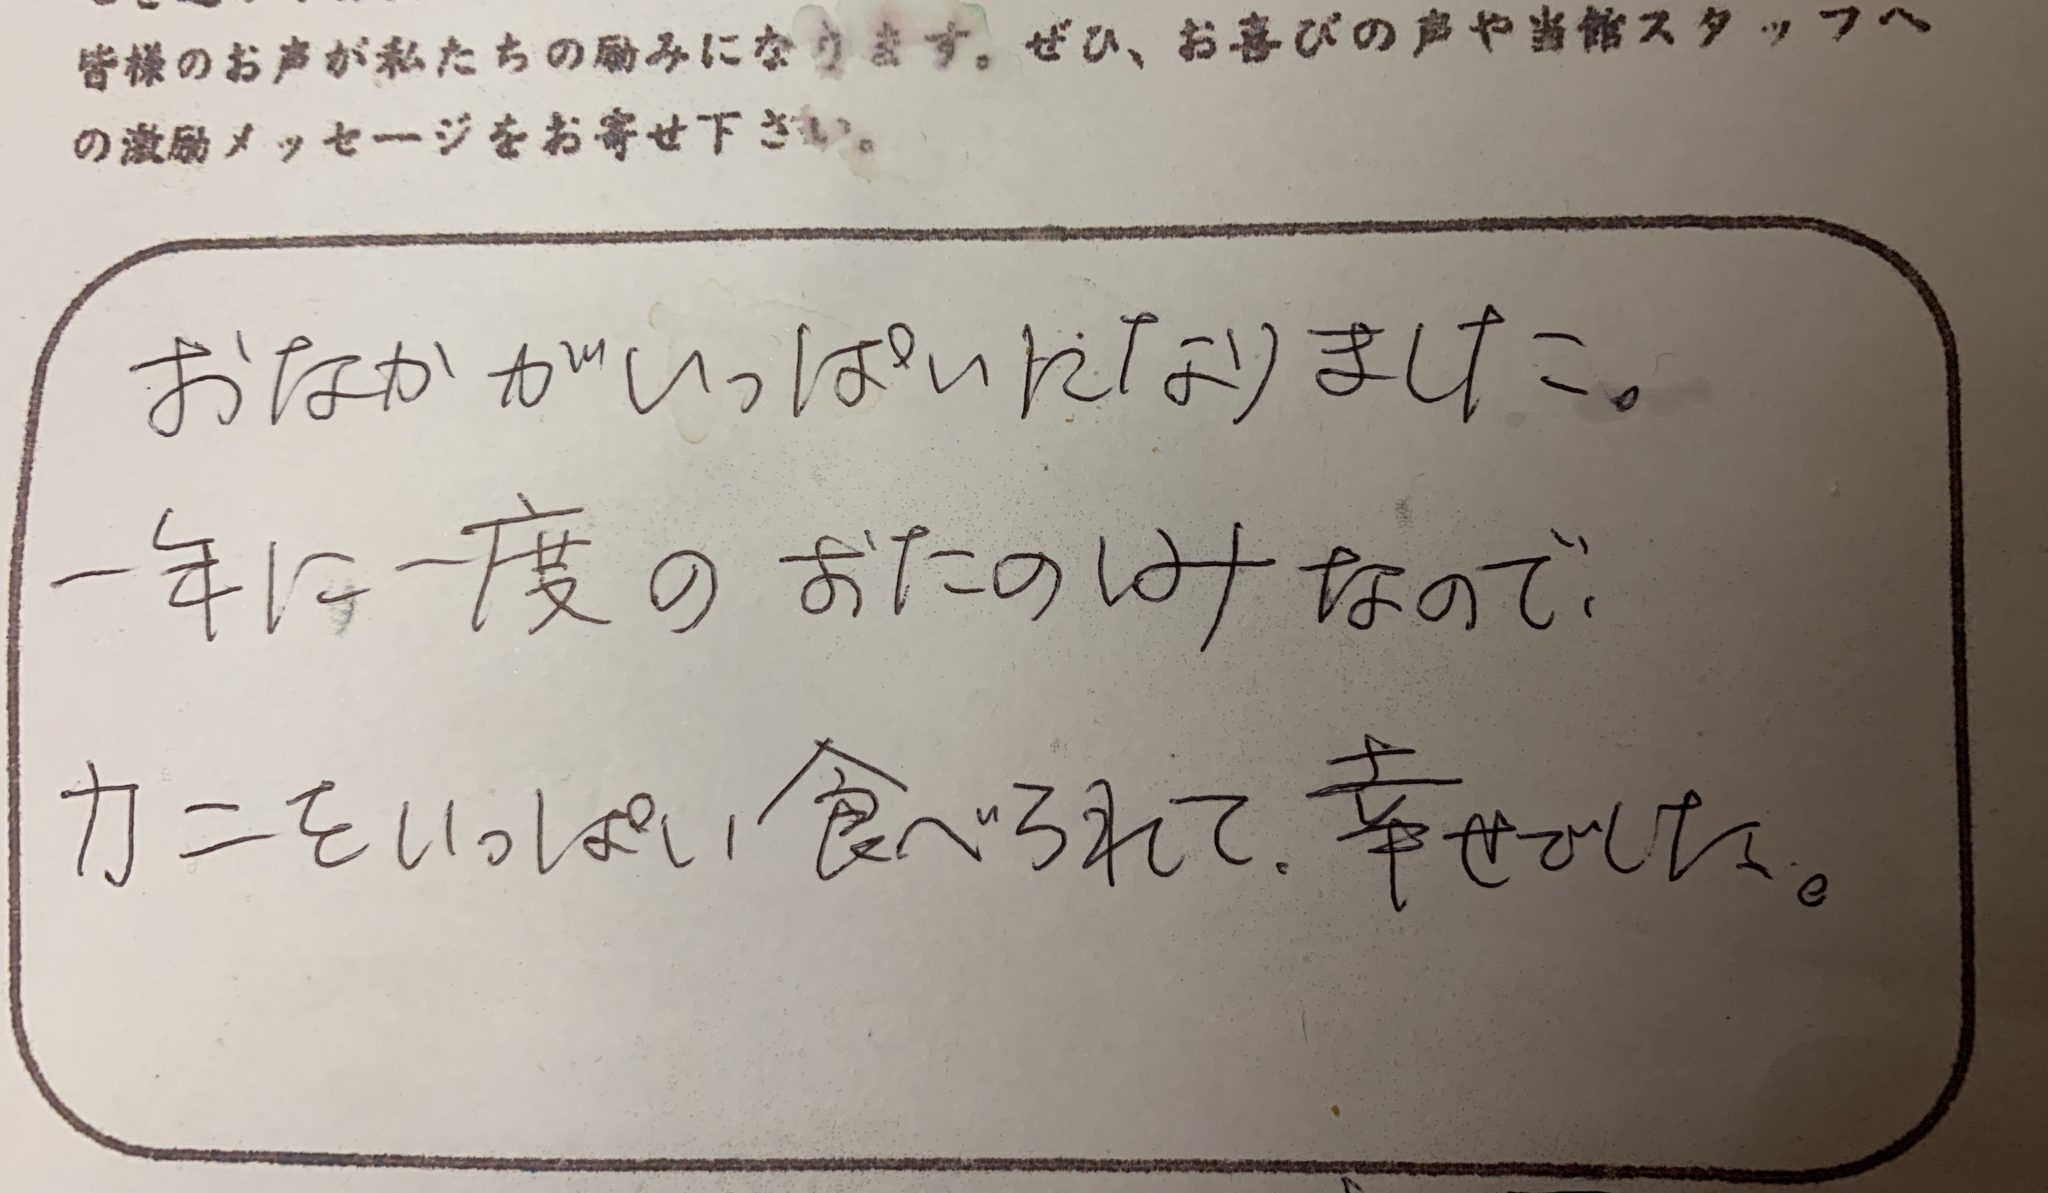 皆様のお声が私たちの励みになります。ぜひ、お喜びの声や当館スタッフへ
の激励メッセージをお寄せ下さい。
おなかがいっぱいになりました。
一年に一度のおたのしみなので、
カニをいっぱい食べられて、幸せでした。